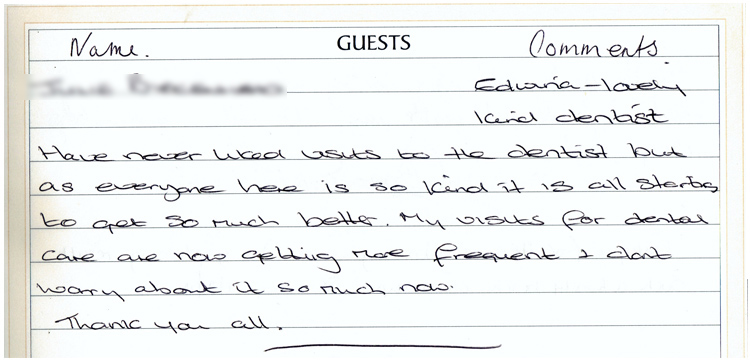 Name. GUESTS Comments.
Edwina - lovely
kind dentist
Have never liked visits to the dentist but
as everyone here is so kind it is all starting
to get so much better. My visits for dental
care are now getting more frequent + don't
worry about it so much now.
Thank you all.